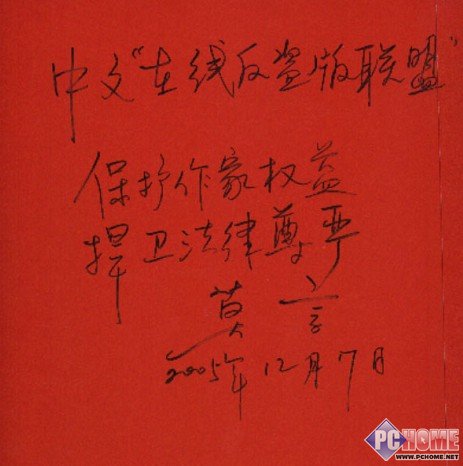 中文"在线反盗版联盟"
保护作家权益
捍卫法律尊严
莫言
2005年12月7日
PCHOME
WWW.PCHOME.NET